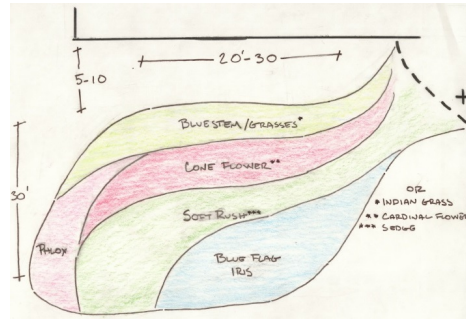 20'-30
5-10
BLUESTEM/GRASSES*
CONE FLOWER**
30'
SOFT RUSH***
PHLOX
BLUE FLAG
IRIS
OR
* INDIAN GRASS
** CARDINAL FLOWER
*** SEDGE